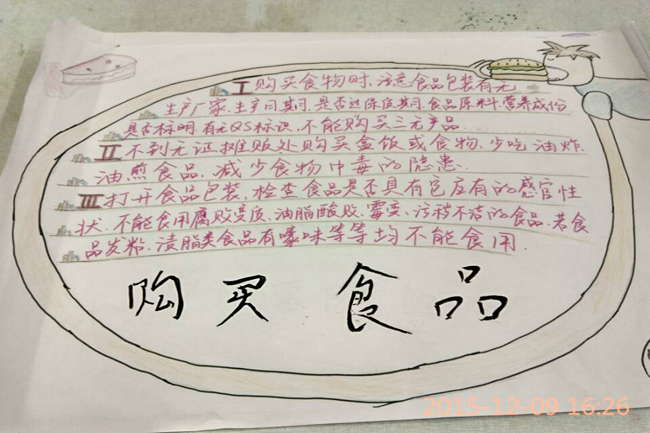 I 购买食物时,注意食品包装有无
生产厂家,生产日期,是否过保质期,食品原料,营养成份
是否标明,有无QS标识,不能购买三无产品.
II 不到无证摊贩处购买盒饭或食物,少吃油炸.
油煎食品,减少食物中毒的隐患.
III 打开食品包装,检查食品是否具有它应有的感官性
状,不能食用腐败变质,油脂酸败,霉变,污秽不洁的食品,若食
品发粘,渍脂类食品有嚎味等等均不能食用.
购买食品
2015-12-09 16:26